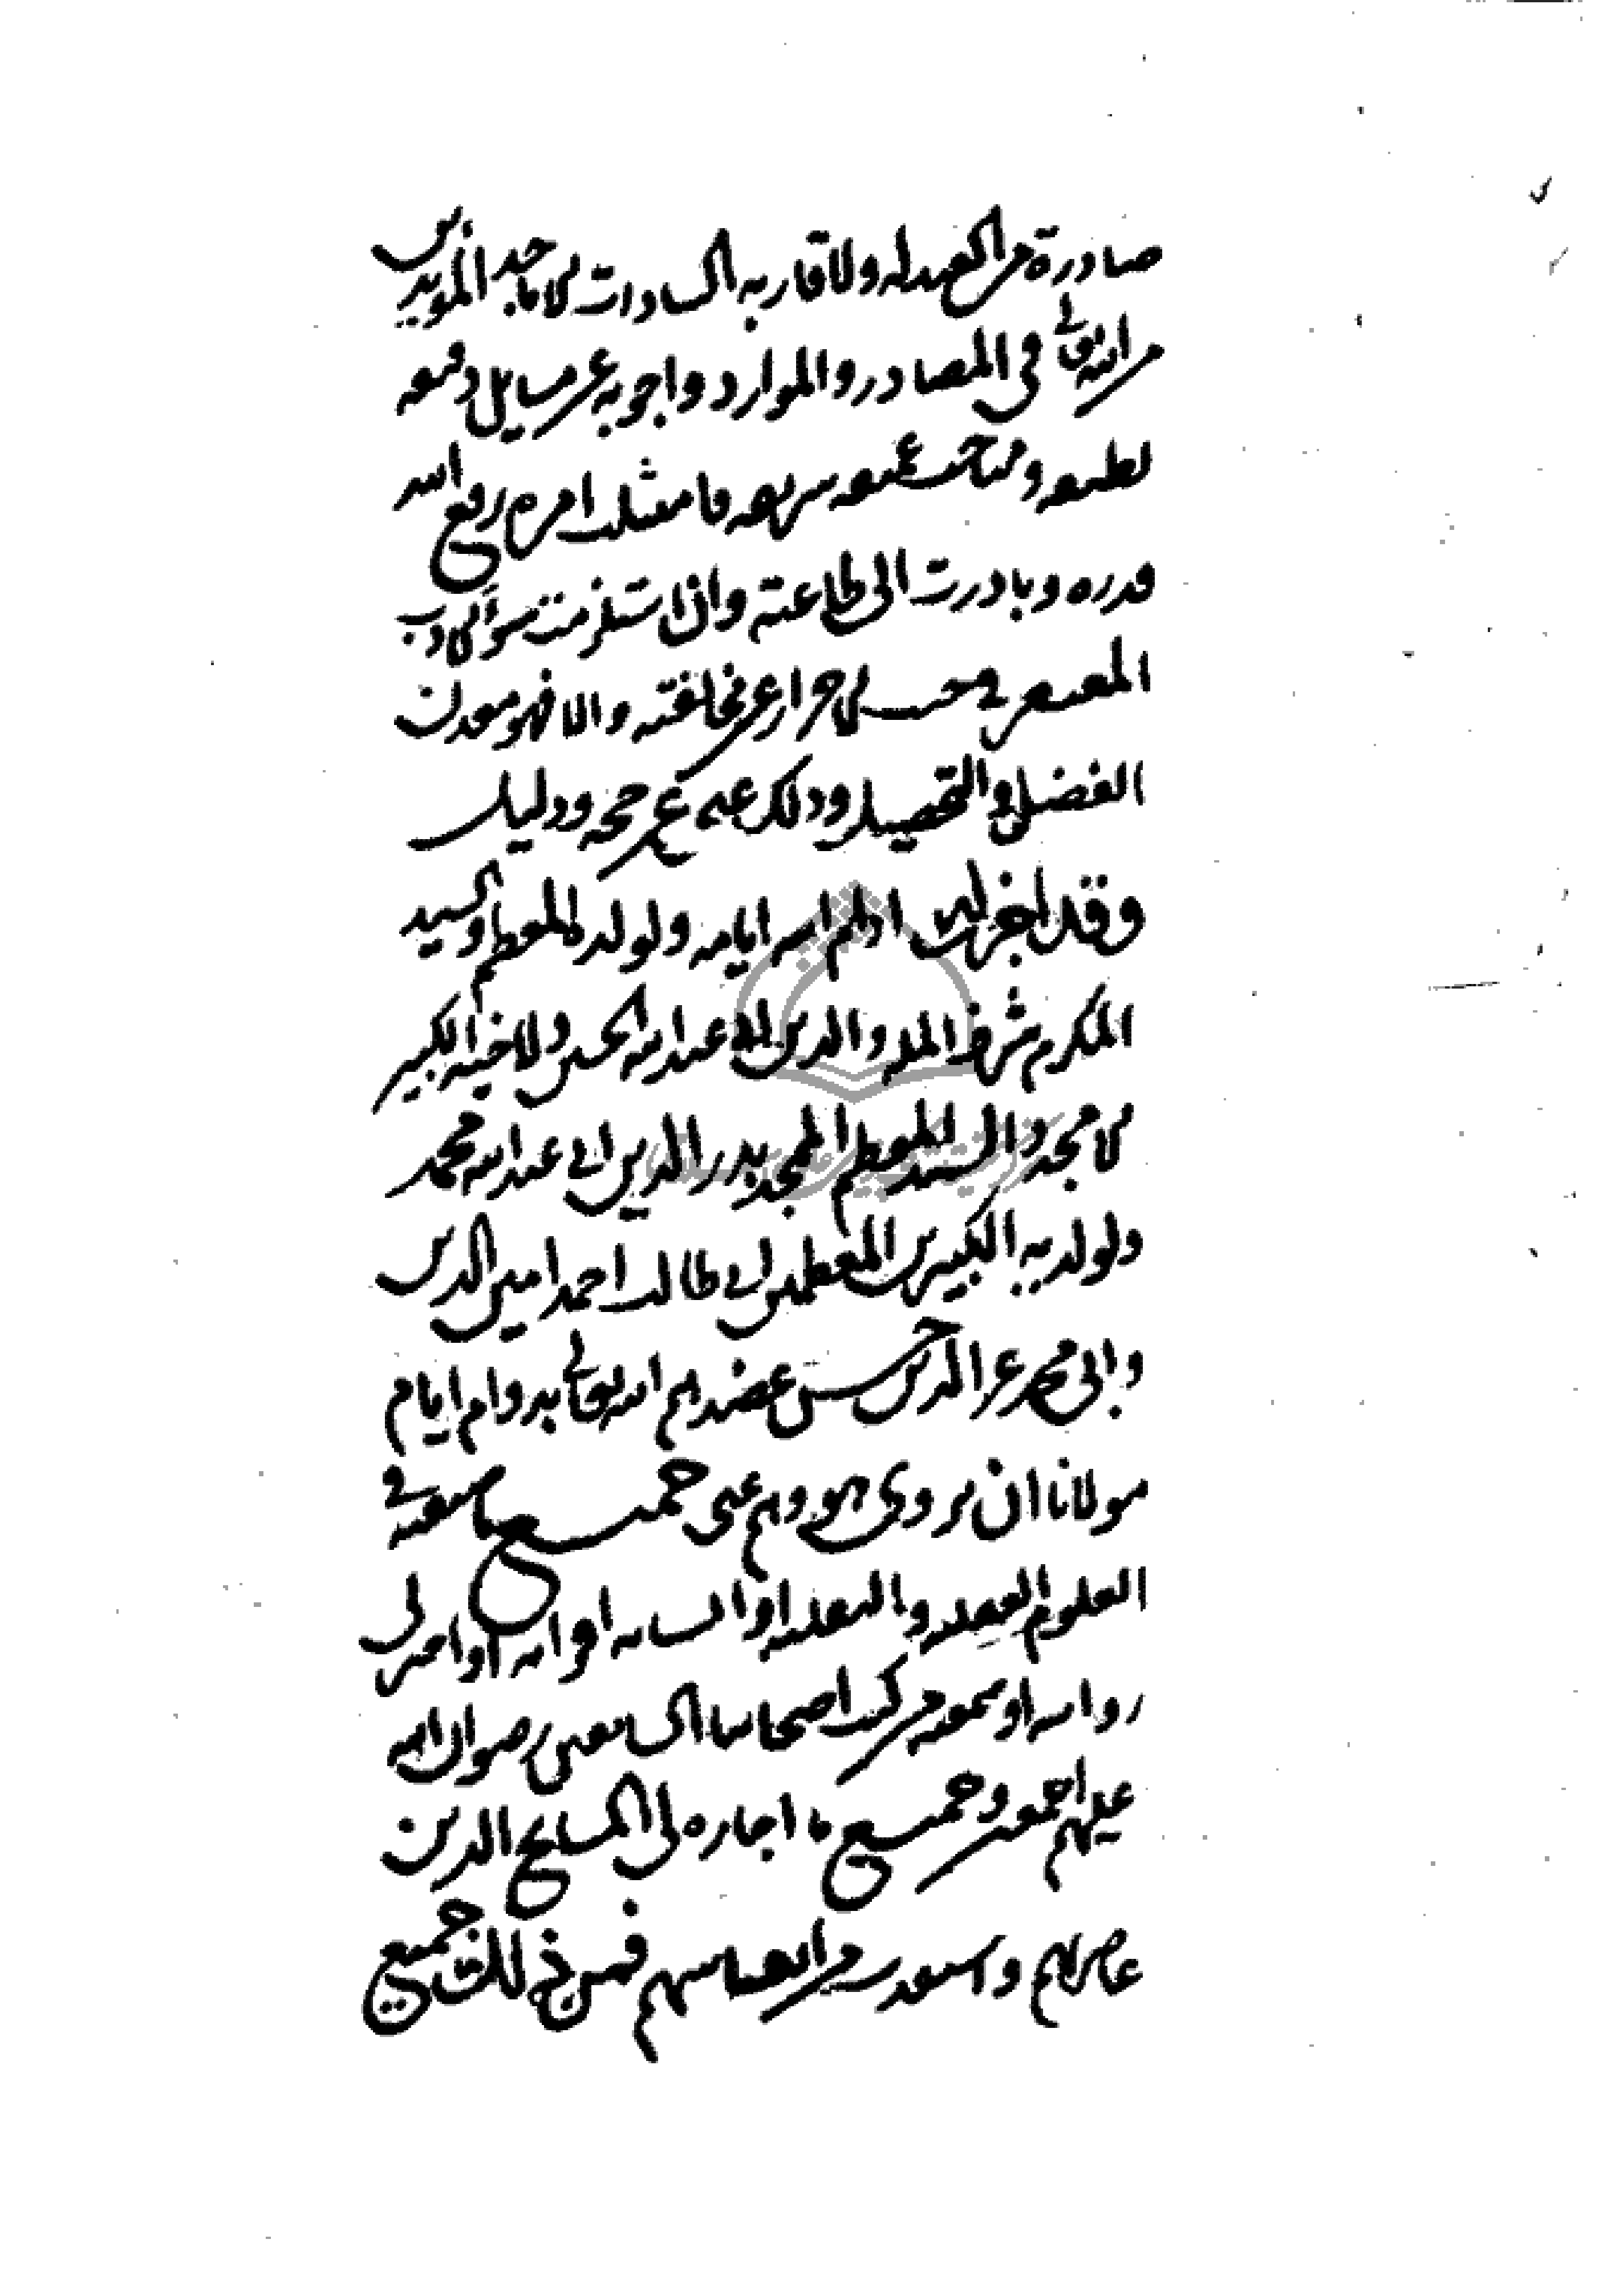 صادرة من العبد له ولاقاربه السادات الاماجد المؤيدين
من الله تعالى في المصادر والموارد واجوبة عن مسايل دقيقة
لطيفة ومباحث عميقة شريفة فامتثلت امره رفع الله
قدره وبادرت الى طاعته وان استلزمت سؤ الادب
المغتفر في جنب الاحتراز عن مخالفته والا فهو معدن
الفضل والتحصيل وذلك غني عن حجة ودليل
وقد اجزت له ادام الله ايامه ولولده المعظم والسيد
المكرم شرف الملة والدين ابي عبد الله الحسين ولاخيه الكبير
الامجد والسيد المعظم الممجد بدر الدين ابي عبد الله محمد
ولولديه الكبيرين المعظمين ابي طالب احمد امين الدين
وابي محمد عز الدين حسن عضدهم الله تعالى بدوام ايام
مولانا ان يروي هو وهم عني جميع ما صنفته في
العلوم العقلية والنقلية او انشأته او قرأته او اجيز لي
روايته او سمعته من كتب اصحابنا السابقين رضوان الله
عليهم اجمعين وجميع ما اجازه لي المشايخ الذين
عاصرتهم واستفدت من انفاسهم فمن ذلك جميع